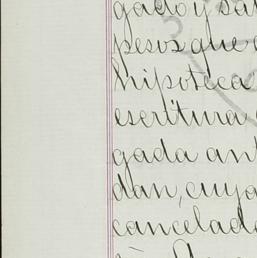 gado y sa
pesos que
hipoteca
escritura
gada an
dan, cuya
cancelad